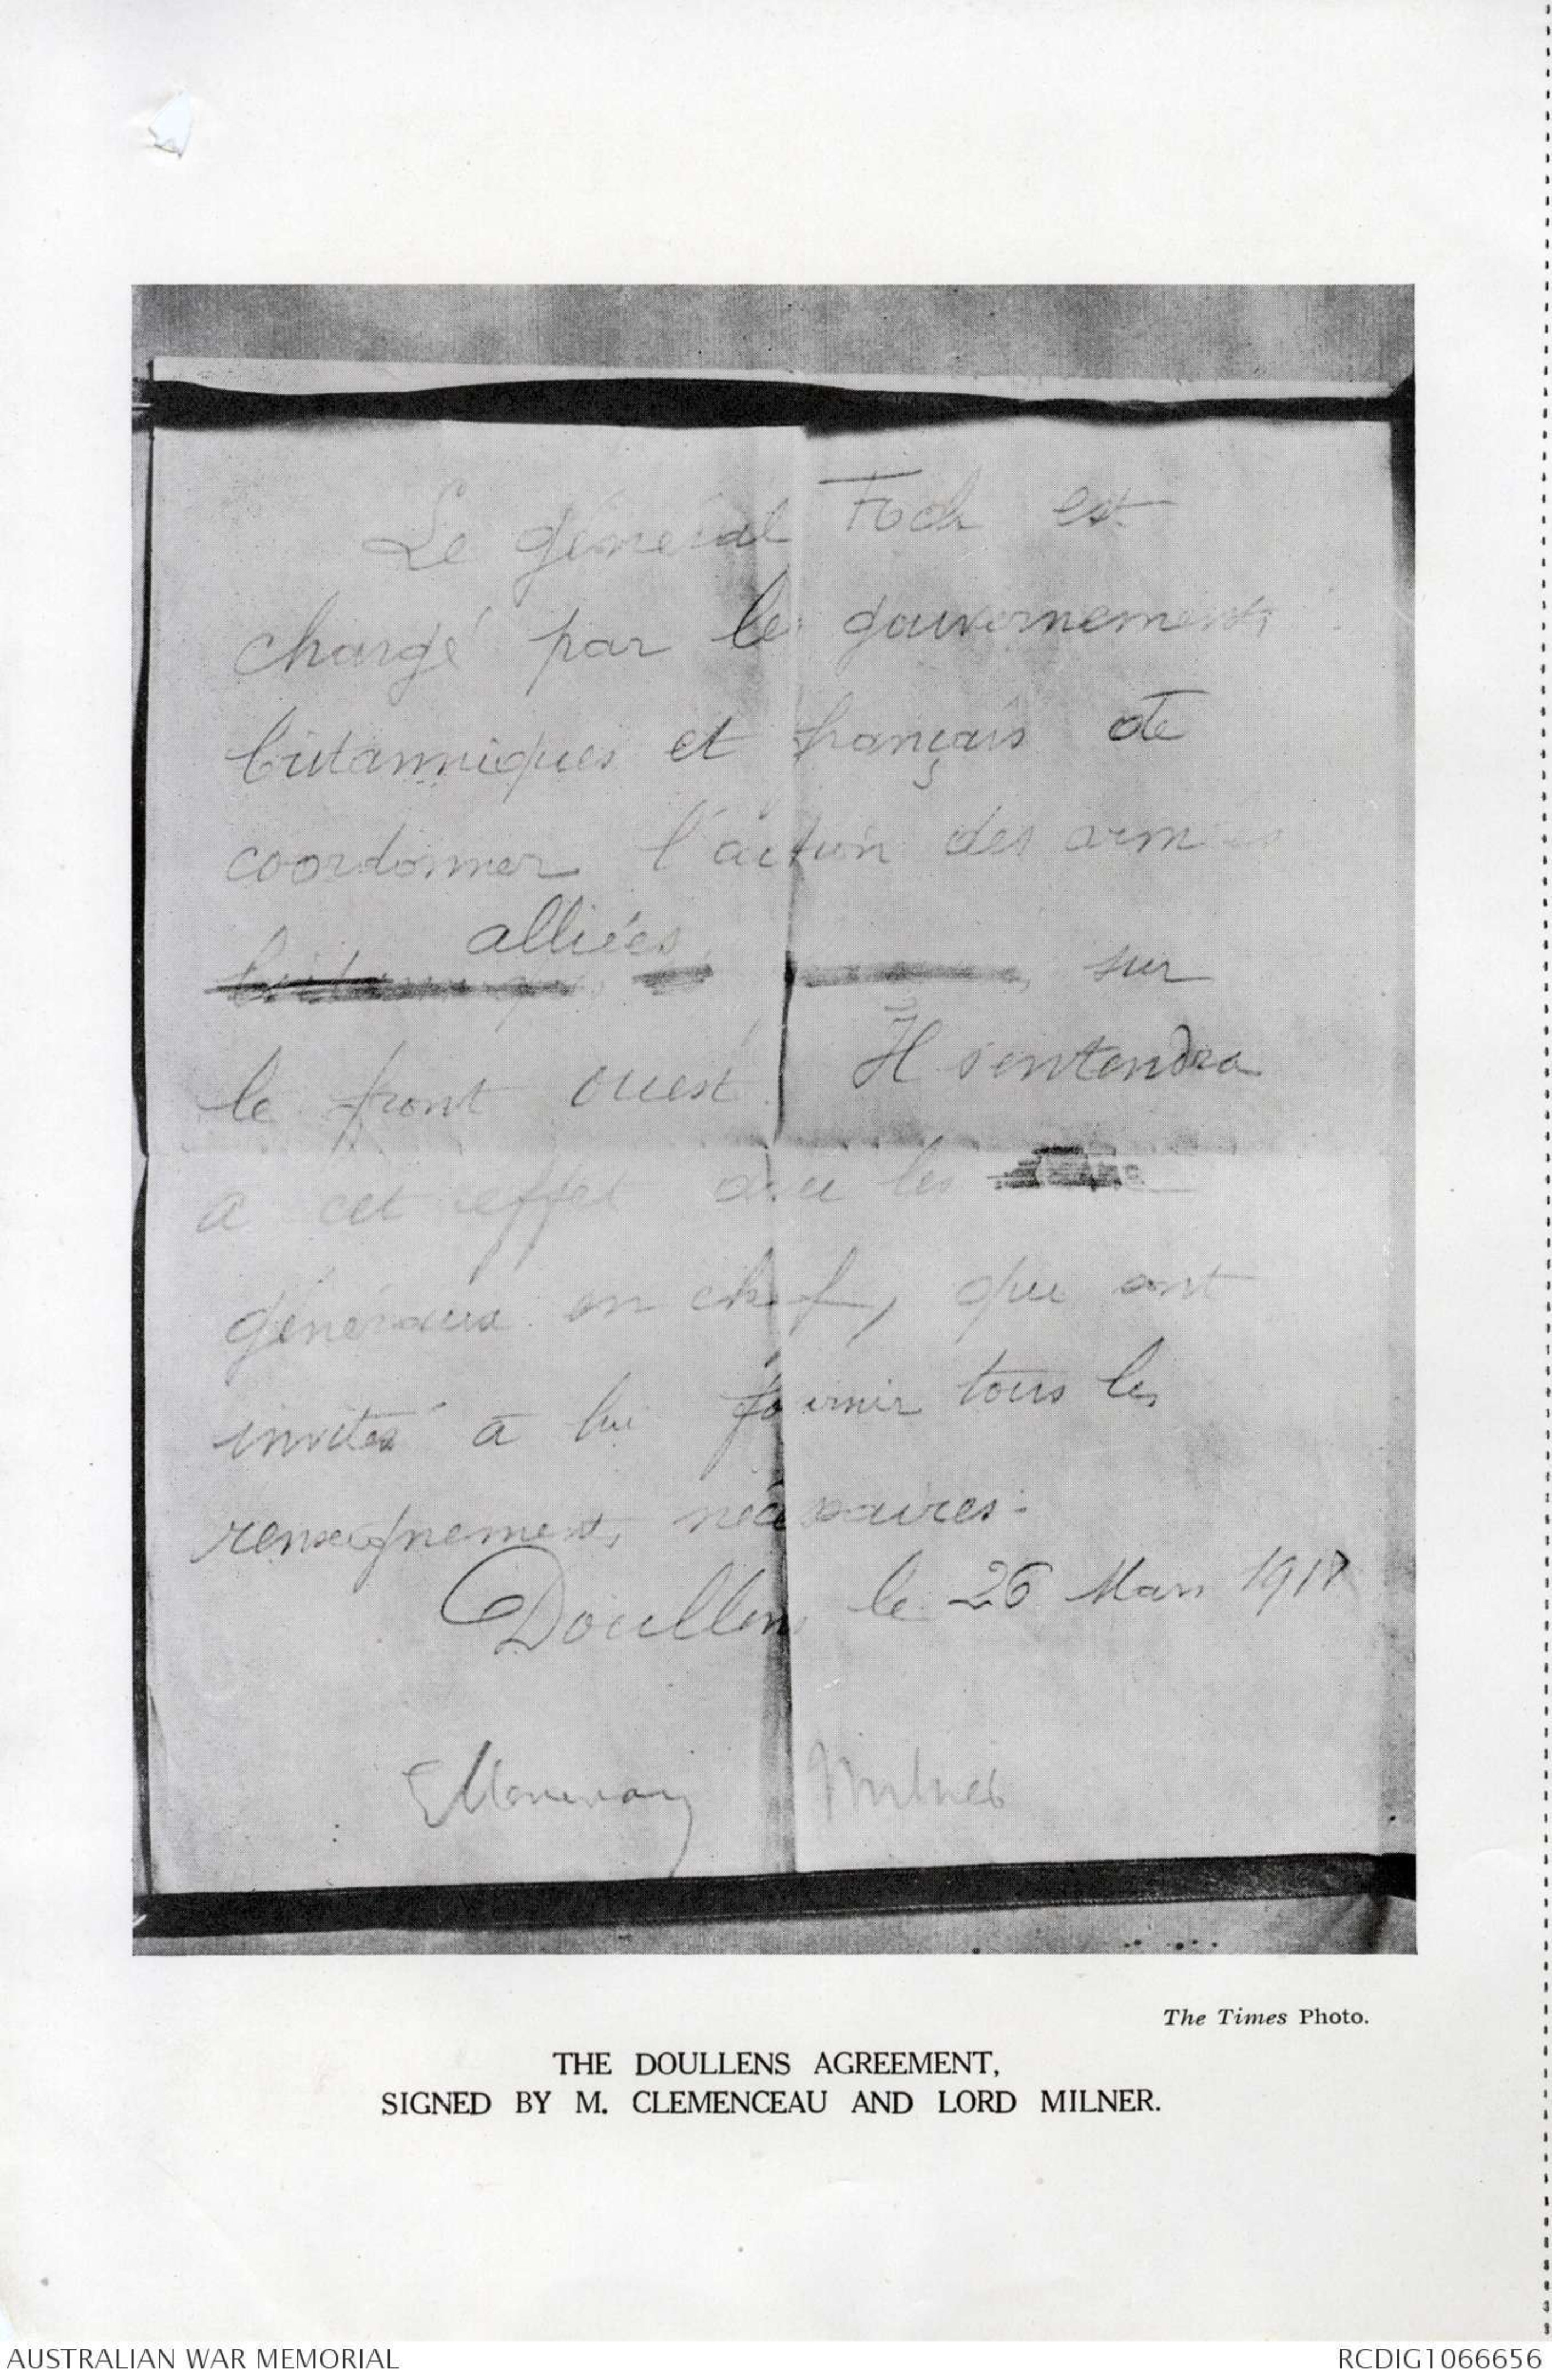 Le général Foch est
chargé par les gouvernements
britanniques et français de
coordonner l'action des armées
alliées
britanniques sur
le front ouest. Il s'entendra
a cet effet avec les
généraux en chef, qui sont
invités à lui fournir tous les
renseignements nécessaires.
Doullens le 26 Mars 1918
GClemenceau Milner
The Times Photo.
THE DOULLENS AGREEMENT,
SIGNED BY M. CLEMENCEAU AND LORD MILNER.
AUSTRALIAN WAR MEMORIAL RCDIG1066656